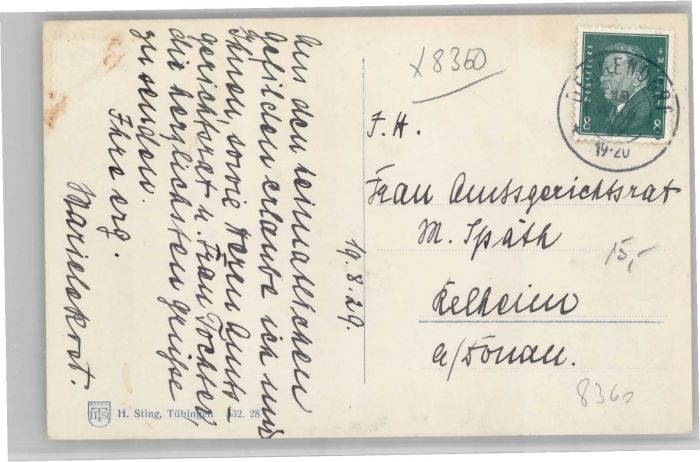 Aus den heimatlichen
Gefilden erlaube ich mir
Ihnen, sowie Herrn Amts-
gerichtsrat u. Frau Tochter
die herzlichsten Grüße
zu senden.
Ihre erg.
19.8.29.
x8360
Deutsches Reich
8 8
19-20
F. H.
Frau Amtsgerichtsrat
M. Späth
15,-
Kelheim
a/Donau.
8360
H. Sting, Tübingen 532. 28